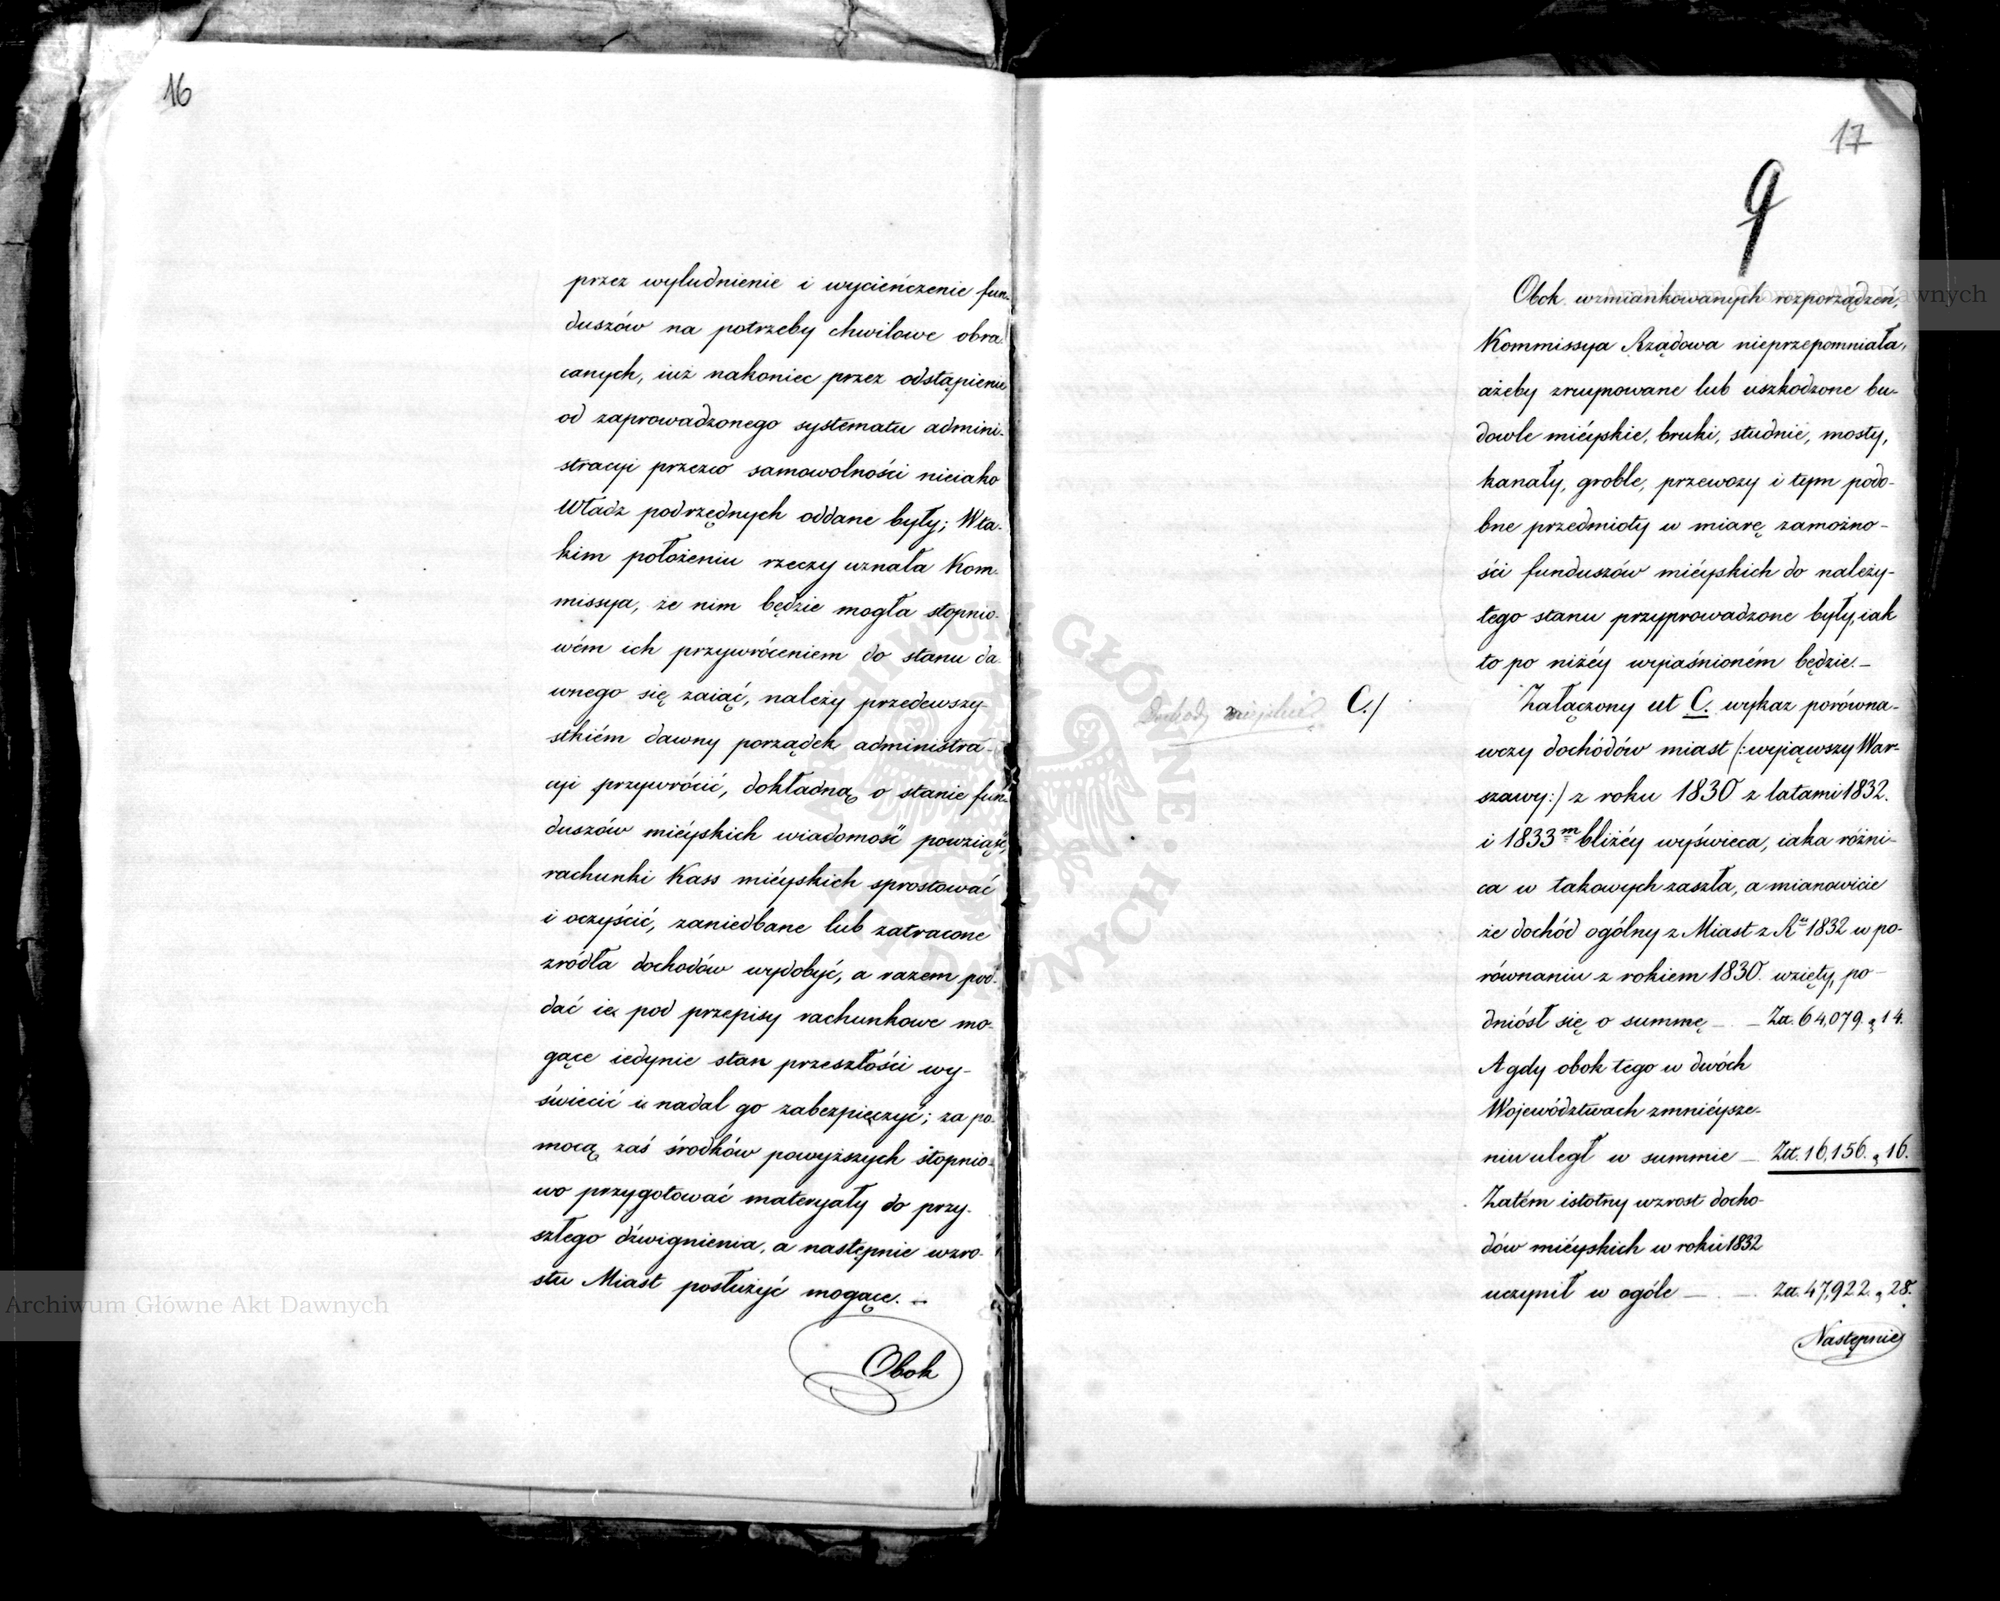 16
przez wyludnienie i wycieńczenie fun-
duszów na potrzeby chwilowe obra-
canych, iuż nakoniec przez odstąpienie
od zaprowadzonego systematu admini-
stracyi przezco samowolności nieiako
Władz podrzędnych oddane były; Wta-
kim położeniu rzeczy uznała Kom-
missya, że nim będzie mogła stopnio-
wém ich przywróceniem do stanu da-
wnego się zaiąć, należy przedewszy-
stkiém dawny porządek administra-
cyi przywrócić, dokładną o stanie fun-
duszów mieyskich wiadomość powziąść,
rachunki Kass mieyskich sprostować
i oczyścić, zaniedbane lub zatracone
zródła dochodów wydobyć, a razem pod-
dać ie pod przepisy rachunkowe mo-
gące iedynie stan przeszłości wy-
świecić i nadal go zabezpieczyć; za po-
mocą zaś środków powyższych stopnio-
wo przygotować materyały do przy-
szłego dźwignienia, a następnie wzro-
stu Miast posłużyć mogące. –
Obok
17
9
Obok wzmiankowanych rozporządzeń,
Kommissya Rządowa nieprzepomniała,
ażeby zruynowane lub uszkodzone bu-
dowle mieyskie, bruki, studnie, mosty,
kanały, groble, przewozy i tym podo-
bne przedmioty w miarę zamożno-
ści funduszów mieyskich do należy-
tego stanu przyprowadzone były, iak
to po niżéy wyiaśnioném będzie. –
Dochody mieyskie C./
Załączony ut C. wykaz porówna-
wczy dochódów miast (: wyiąwszy War-
szawy :) z roku 1830 z latami 1832.
i 1833m bliżéy wyświeca, iaka różni-
ca w takowych zaszła, a mianowicie
że dochód ogólny z Miast z Ru 1832 w po-
równaniu z rokiem 1830. wzięty, po-
dniósł się o summę – – Zł. 64,079. g 14.
A gdy obok tego w dwóch
Województwach zmnieysze-
niu uległ w summie – Zł. 16,156. g 16.
Zatém istotny wzrost docho-
dów mieyskich w roku 1832
uczynił w ogóle – . – Zł. 47,922. g 28.
Następnie
Archiwum Główne Akt Dawnych
Archiwum Główne Akt Dawnych
ARCHIWUM GŁÓWNE AKT DAWNYCH